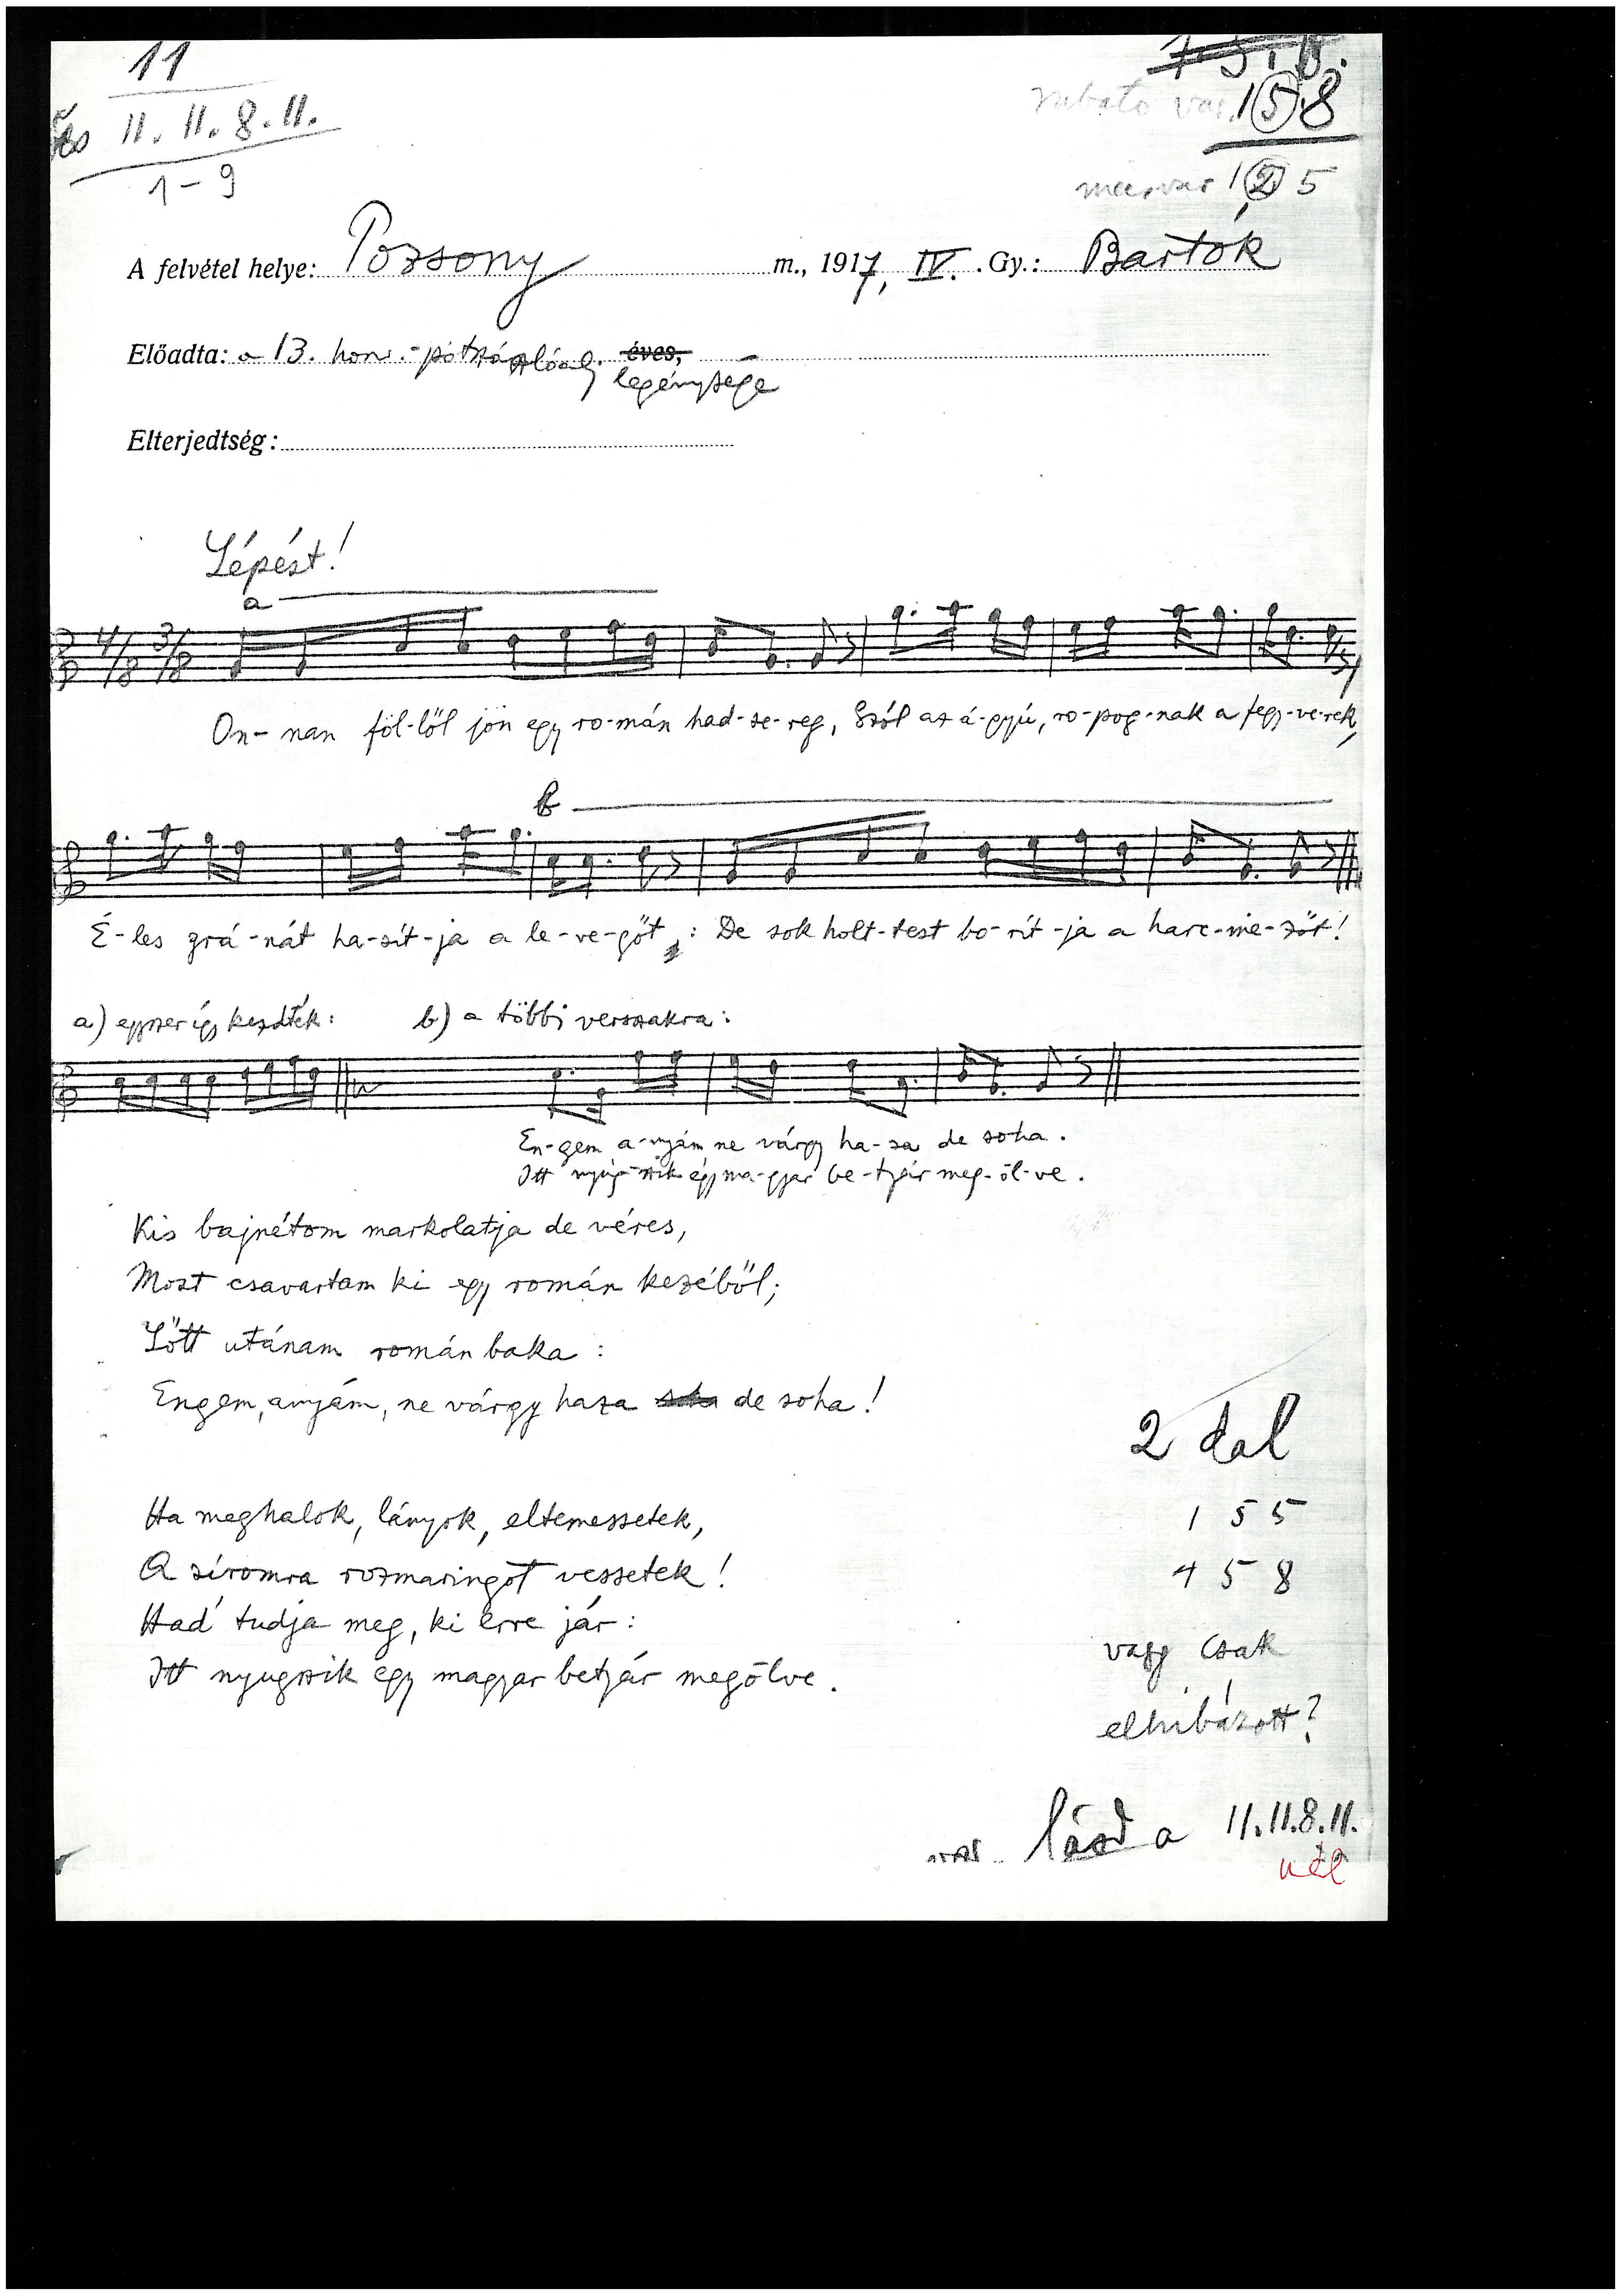 11
11. 11. 8. 11.
1 - 9
1 5 8
1 2 5
A felvétel helye: Pozsony m., 1917, IV. Gy.: Bartók
Előadta: a 13. honv.-pótzászlóalj éves,
legénysége
Elterjedtség:
Lépést!
a
4/8 3/8
On-nan föl-löl jön egy ro-mán had-se-reg, Szól az á-gyú, ro-pog-nak a fegy-ve-rek,
b
É-les grá-nát ha-sít-ja a le-ve-gőt: De sok holt-test bo-rít-ja a harc-me-zőt!
a) egyszer így kezdték: b) a többi versszakra:
En-gem a-nyám ne várgy ha-za de soha.
Itt nyug-szik egy ma-gyar be-tyár meg-öl-ve.
Kis bajnétom markolatja de véres,
Most csavartam ki egy román kezéből;
Lőtt utánam román baka:
Engem, anyám, ne várgy haza de soha!
2 dal
Ha meghalok, lányok, eltemessetek,
1 5 5
A síromra rozmaringot vessetek!
1 5 8
Had' tudja meg, ki erre jár:
vagy csak
Itt nyugszik egy magyar betyár megölve.
elhibázott?
lásd a 11.11.8.11.
nél